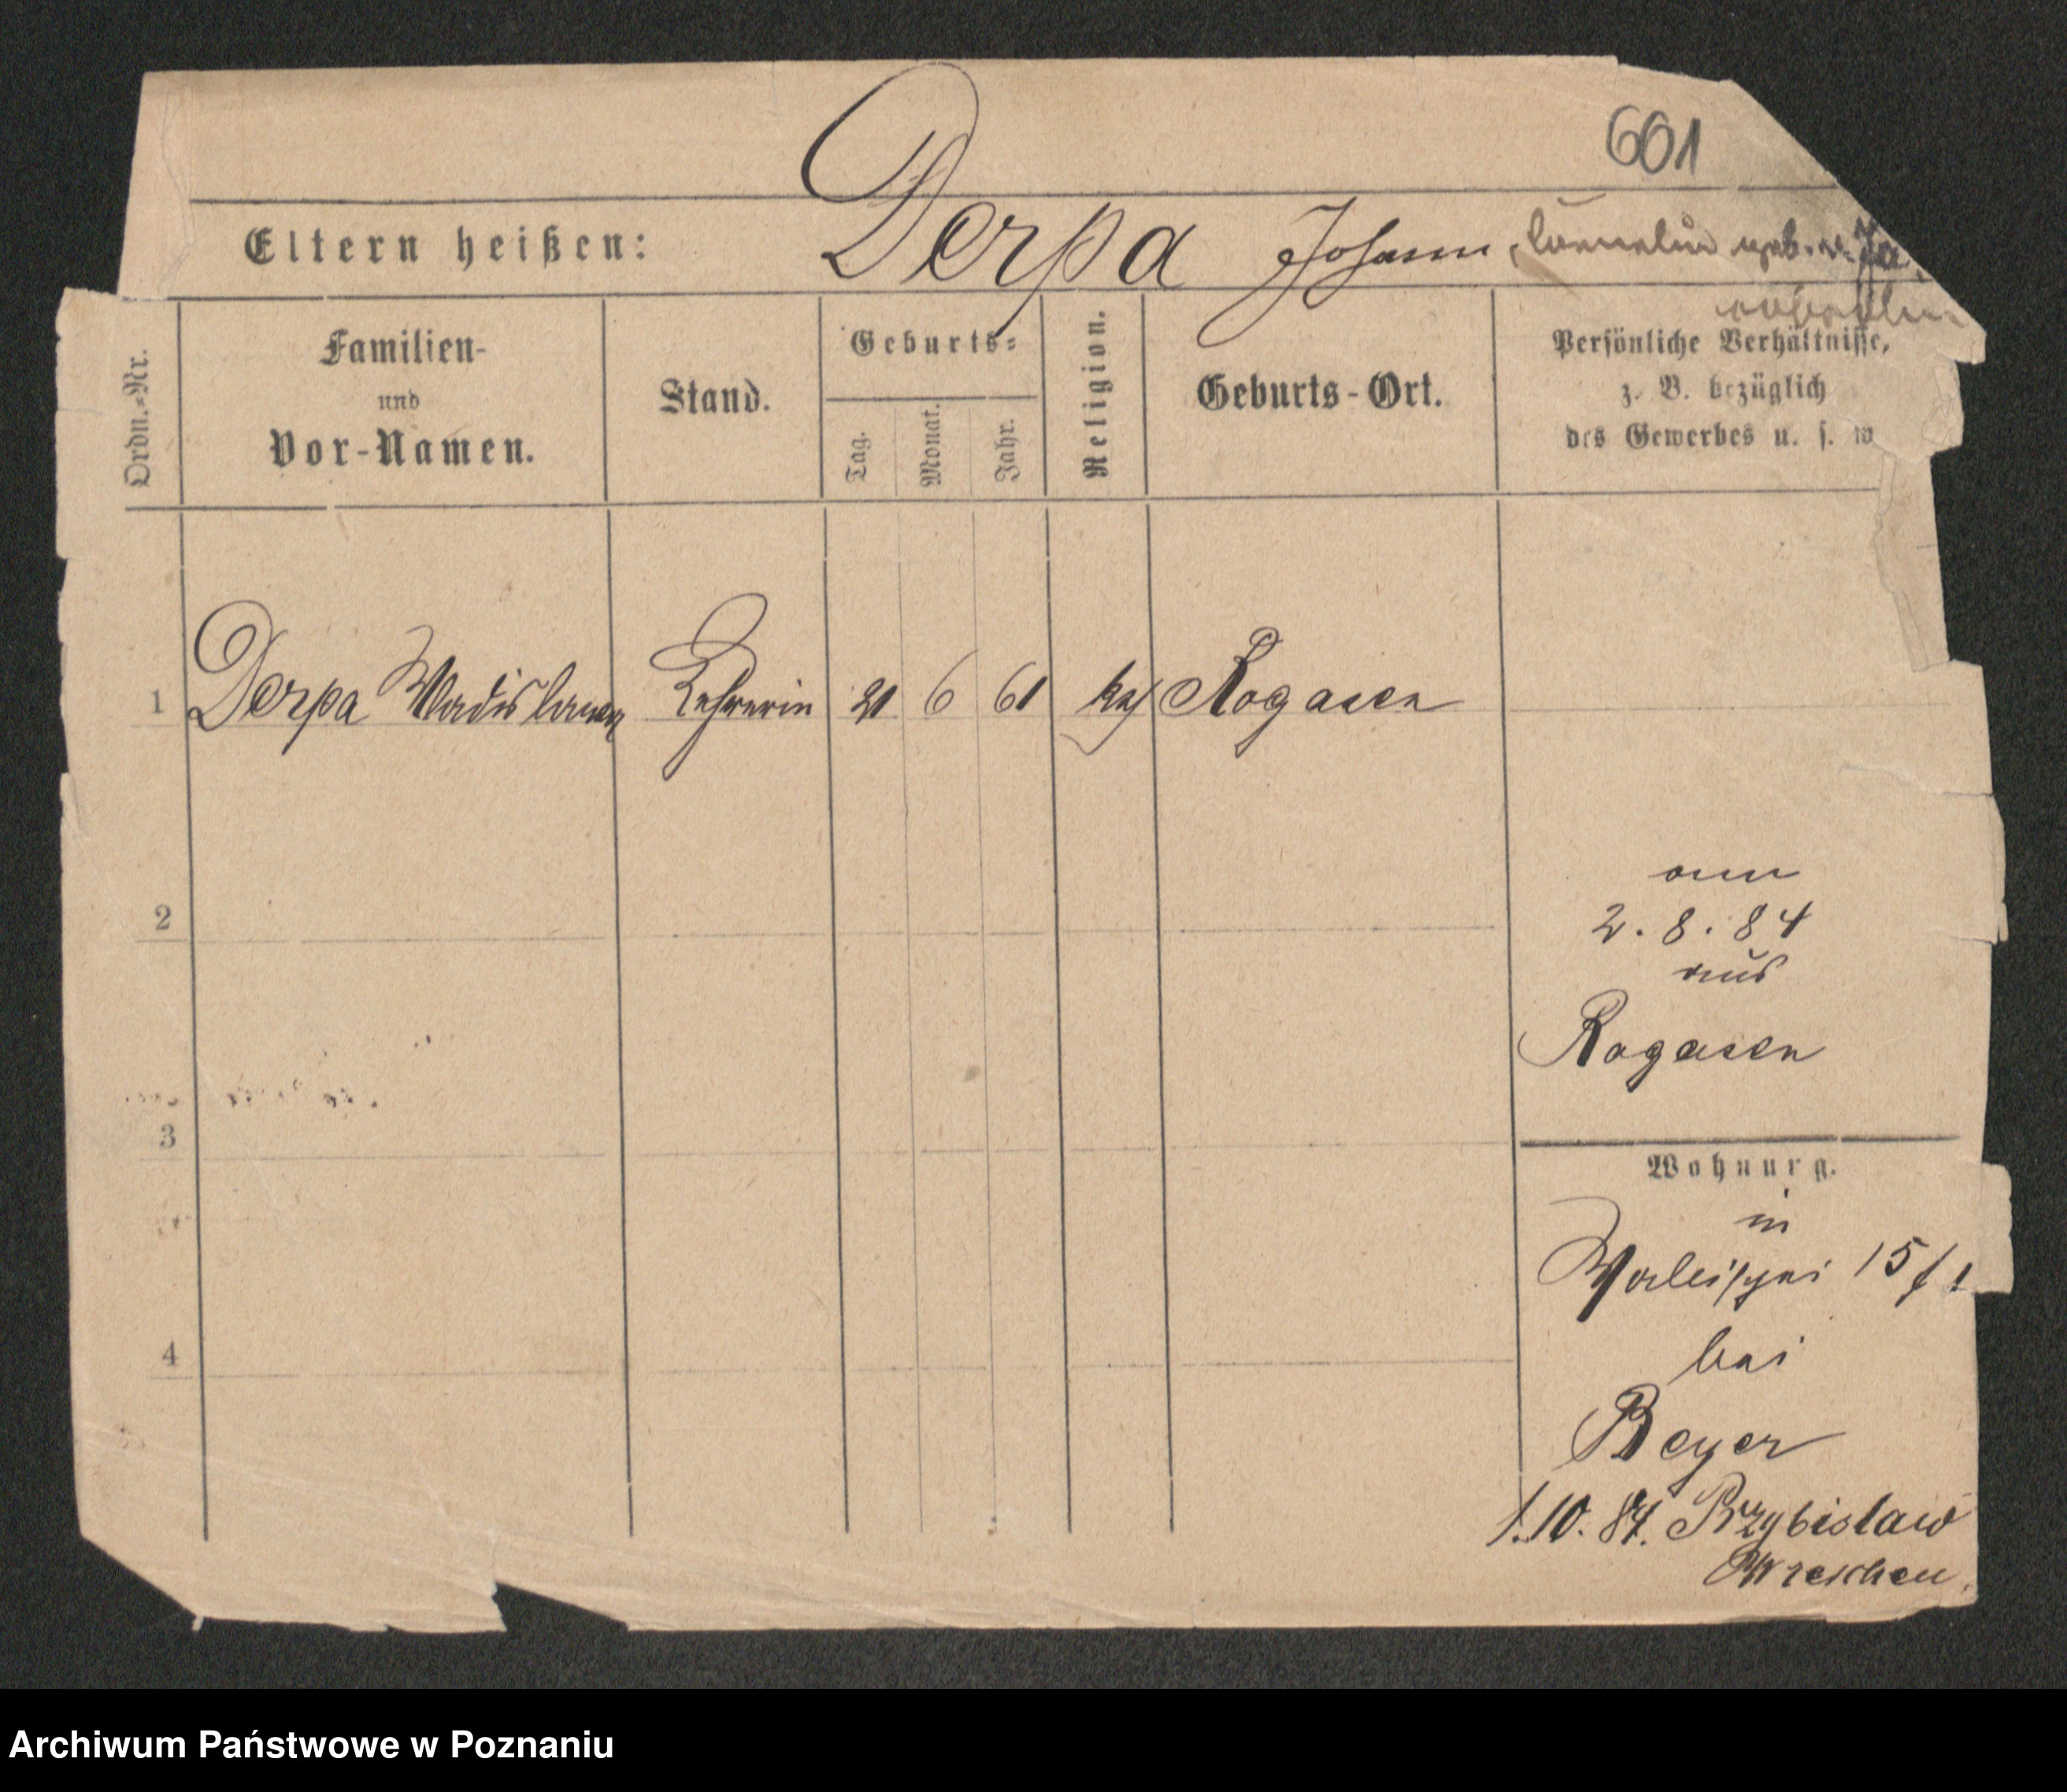 601
Eltern heißen: Derpa Johann, Cornelia geb. v.
Ordn.-Nr.
Familien-
und
Vor-Namen.
Stand.
Geburts-
Tag.
Monat.
Jahr.
Religion.
Geburts-Ort.
Persönliche Verhältnisse,
z. B. bezüglich
des Gewerbes u. s. w
1 Derpa Wladislawa Lehrerin 21 6 61 kath Rogasen
2
am
2.8.84
aus
Rogasen
3
Wohnung.
in
Wallischei 15/1
4
bei
Beyer
1.10.84. Przybislaw
Wreschen.
Archiwum Państwowe w Poznaniu